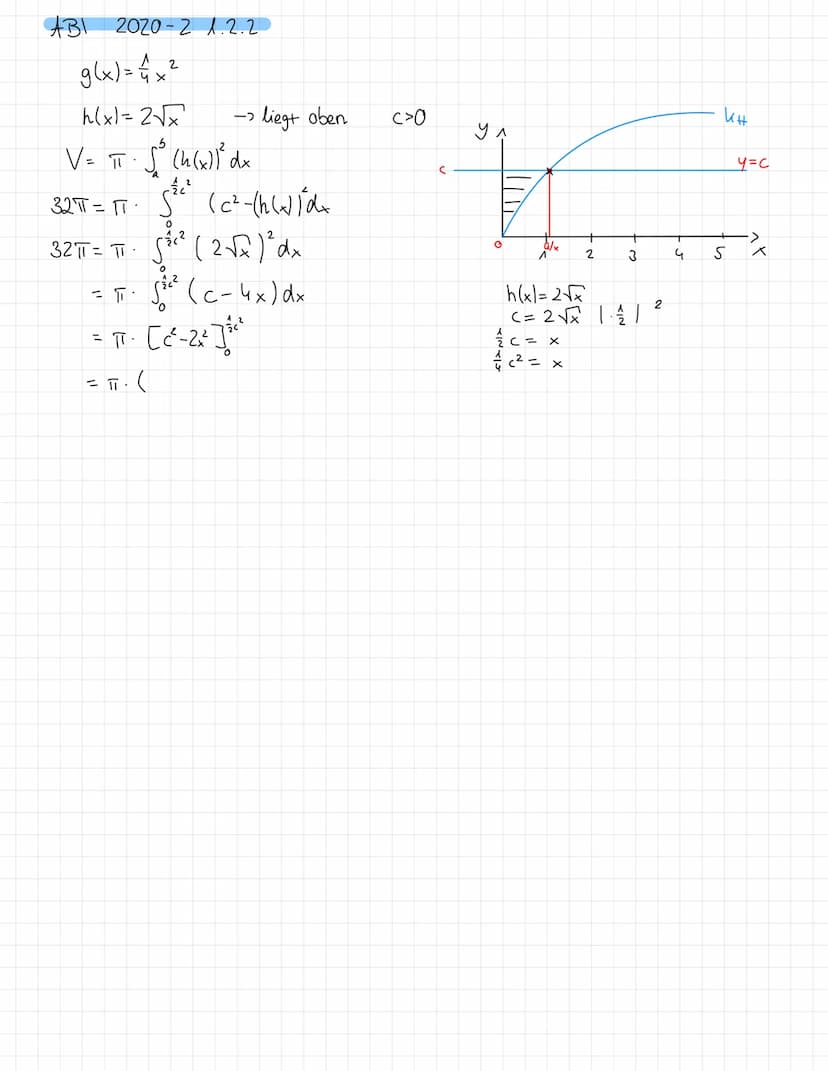 ABI 2020-2 1.2.2
g(x)=¼x²
h(x)= 2√x → liegt oben c>0
V= π · ∫ₐᵇ (h(x))² dx
32π = π · ∫₀^(½c²) (c²-(h(x))²dx
32π = π · ∫₀^(½c²) (2√x)² dx
= π · ∫₀^(½c²) (c-4x)dx
= π · [c²-2x²]₀^(½c²)
= π · (
y
K_H
c
y=c
0 1 2 3 4 5 x
h(x)=2√x
c = 2√x |·½ | ²
½ c = x
¼ c² = x